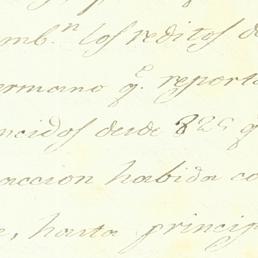 mb.n los reditos de
ermano q.e reporta
ncidos desde 825 q
accion habida co
e, hasta princip